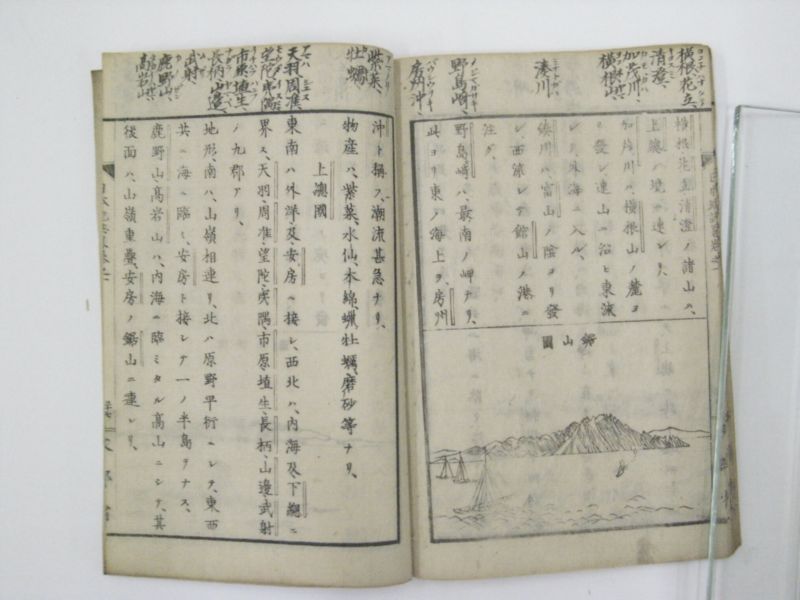 横根花立
清澄、
加茂川、
横根山、
湊川
野島崎、
房州沖、
横根花立清澄ノ諸山ハ、
上総ノ境ニ連レリ、
加茂川ハ、横根山ノ麓ヨ
リ發シ連山ニ沿ヒ東流
シテ外海ニ入ル、
湊川ハ、富山ノ陰ヨリ發
シ、西流シテ館山ノ港ニ
注グ、
野島崎ハ、最南ノ岬ナリ、
此ヨリ東ノ海上ヲ、房州
鋸山圖
紫菜、
牡蠣
天羽周准、
望陀夷隅
市原埴生、
長柄山邊、
武射
鹿野山、
高岩山、
沖ト稱ス、潮流甚急ナリ、
物産ハ、紫菜、水仙、木綿、蠟、牡蠣、磨砂等ナリ、
上總國
東南ハ外洋及安房ニ接シ、西北ハ、内海及下總ニ
界ス、天羽、周准、望陀、夷隅、市原、埴生、長柄、山邊、武射
ノ九郡アリ、
地形、南ハ、山嶺相連リ、北ハ原野平衍ニシテ、東西
共ニ海ニ臨ミ、安房ト接シテ一ノ半島ヲナス、
鹿野山、高岩山ハ、内海ニ臨ミタル高山ニシテ、其
後面ハ、山嶺重疊、安房ノ鋸山ニ連レリ、